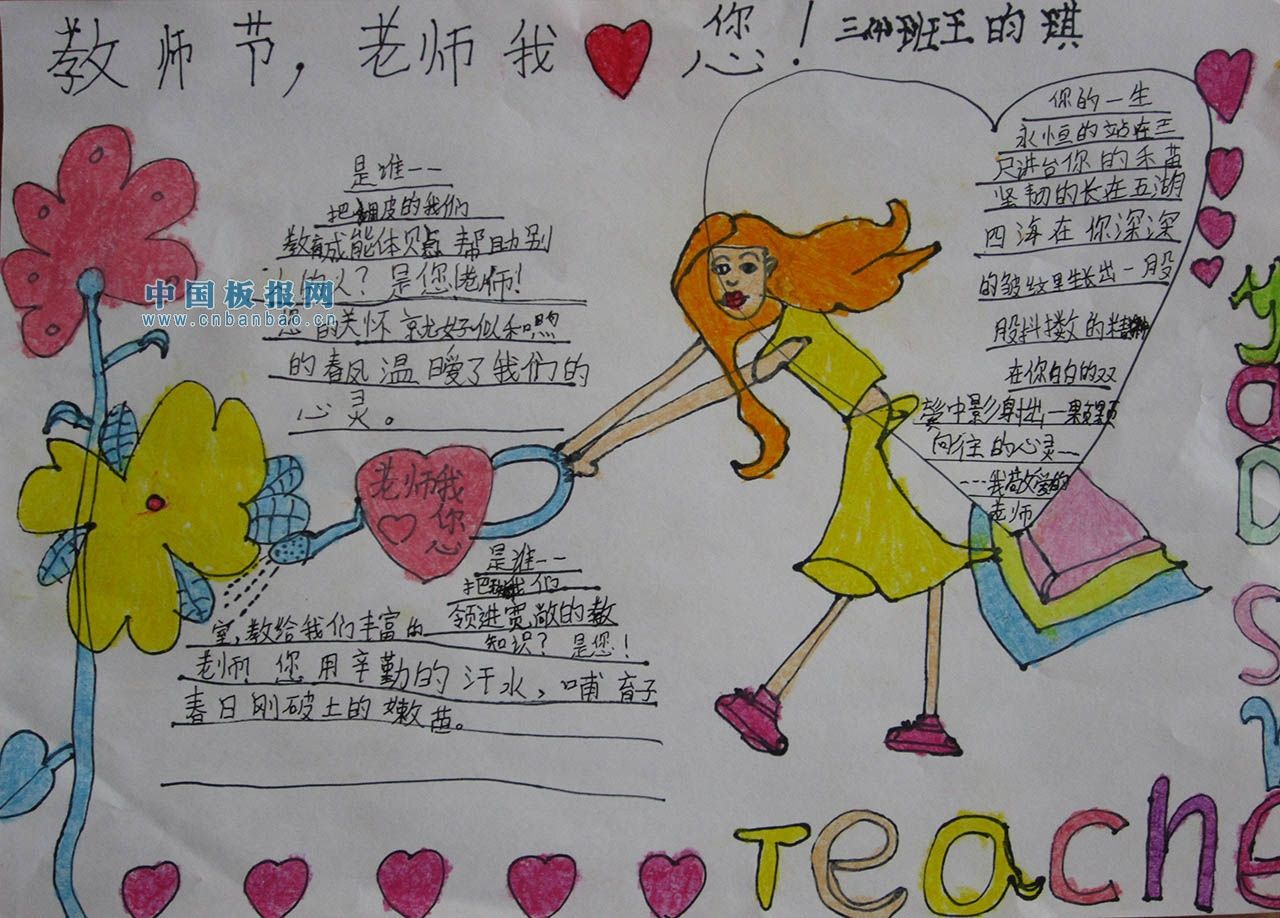 教师节，老师我❤您！三(4)班王的琪
是谁——
把调皮的我们
教育成能体贝占帮助别
人的人？是您！老师！
您的关怀就好似和煦
的春风温暖了我们的
心灵。
中国板报网
www.cnbanbao.cn
老师我
♡您
是谁——
把我们
领进宽敞的教
室，教给我们丰富的
知识？是您！
老师！您用辛勤的汗水，哺育子
春日刚破土的嫩苗。
你的一生
永恒的站在三
尺讲台你的禾苗
坚韧的长在五湖
四海在你深深
的皱纹里生长出一股
股抖擞的精神
在你白的双
鬓中影射出一颗颗
向往的心灵——
---我敬爱的
老师
Teache